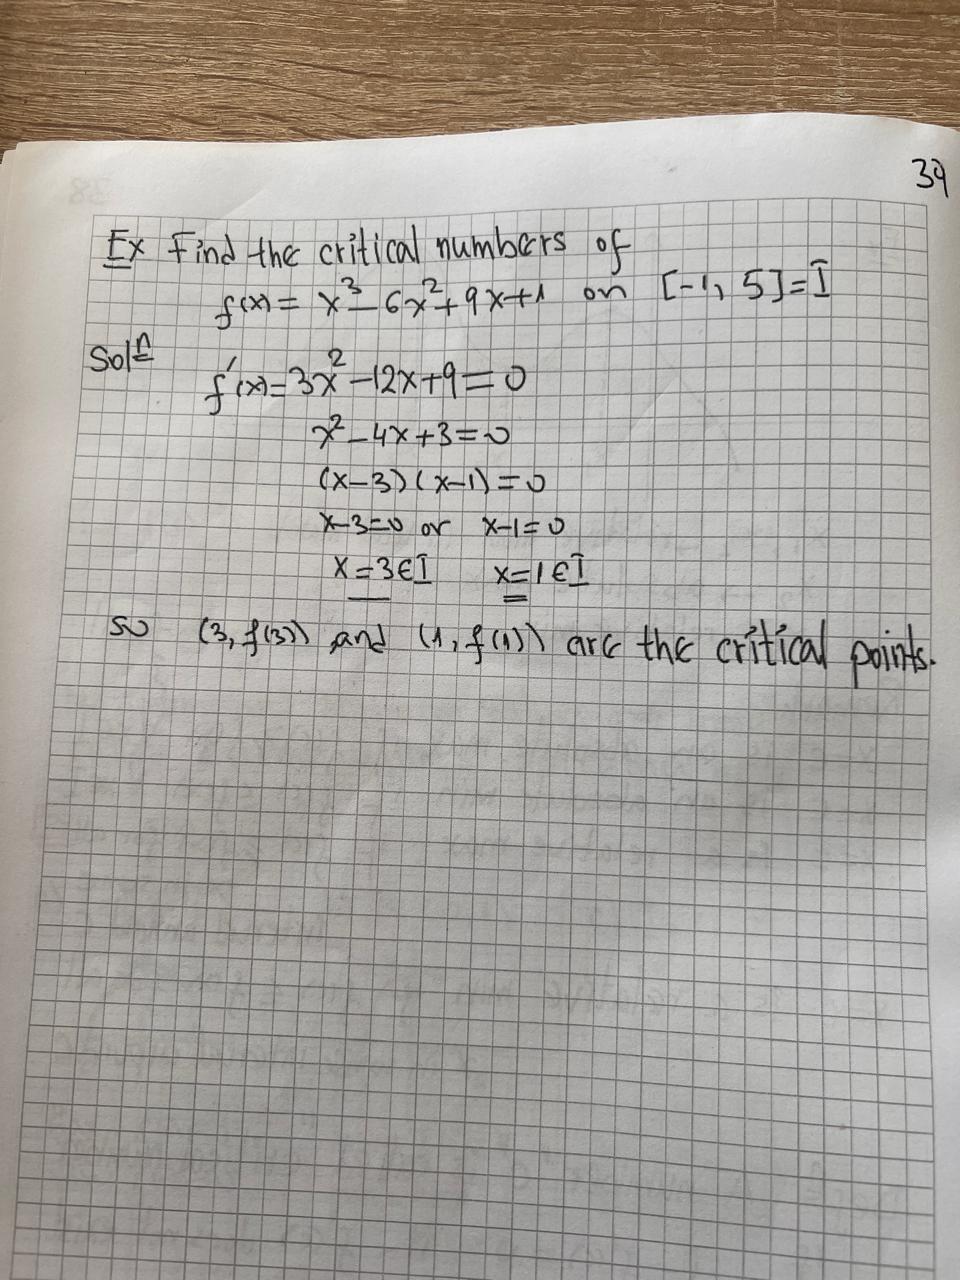 39
Ex Find the critical numbers of
f(x) = x³ - 6x² + 9x + 1 on [-1, 5] = I
Solⁿ
f'(x) = 3x² - 12x + 9 = 0
x² - 4x + 3 = 0
(x-3)(x-1) = 0
x-3=0 or x-1=0
x=3∈I x=1∈I
so (3, f(3)) and (1, f(1)) are the critical points.